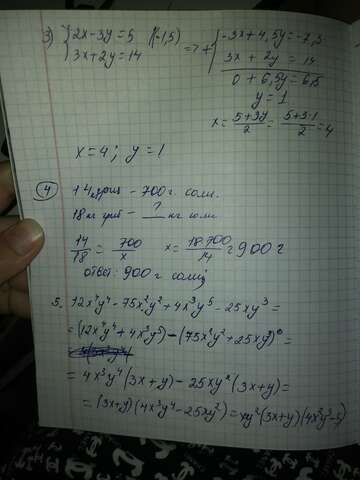 3) { 2x-3y=5 |(-1,5)
3x+2y=14
=> + { -3x+4,5y=-7,5
3x + 2y = 14
0+6,5y=6,5
y=1
x= (5+3y)/2 = (5+3·1)/2 =4
x=4; y=1
④ 14кггриб - 700г. соли.
18 кг гриб - ? кг соли
14/18 = 700/x x= 18·700/14 = 900 г
ответ: 900 г соли
5. 12x⁴y⁴ - 75x²y² + 4x³y⁵ - 25xy³ =
= (12x⁴y⁴ + 4x³y⁵) - (75x²y² + 25xy³) =
= 4x³y⁴(3x+y) - 25xy²(3x+y) =
= (3x+y)(4x³y⁴ - 25xy²) = xy²(3x+y)(4x²y²-5)